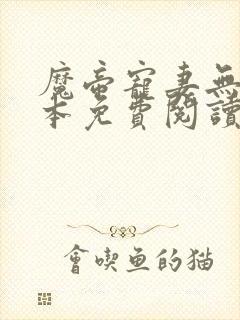 魔帝寵妻無
本免費閱讀
會喫魚的猫